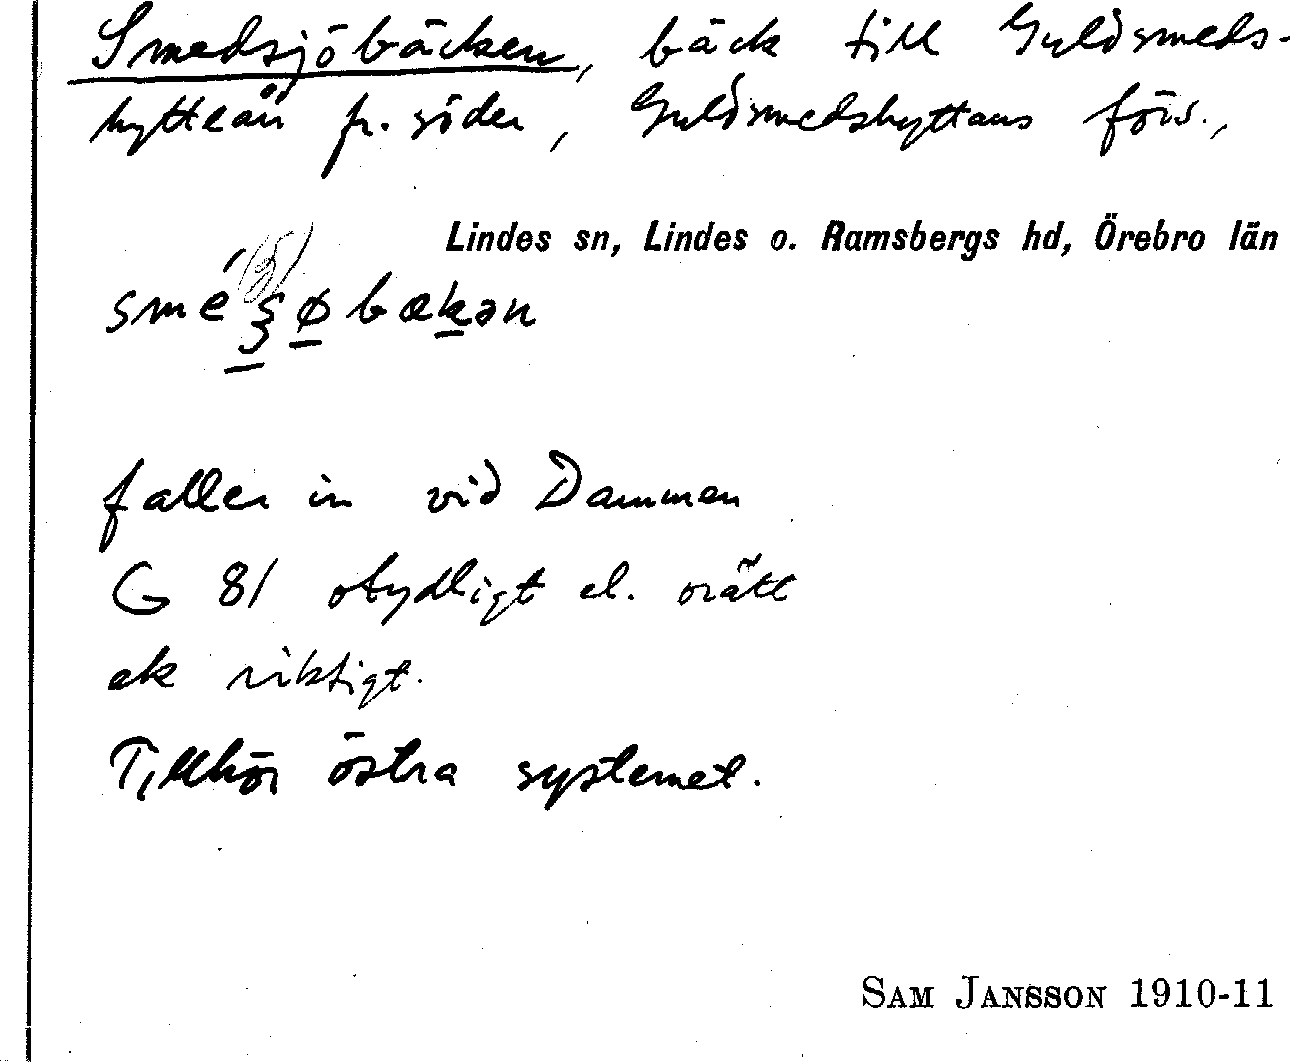 Smedsjöbäcken, bäck till Guldsmeds-
hytteån fr. söder, Guldsmedshyttans förs.,
Lindes sn, Lindes o. Ramsbergs hd, Örebro län
faller in vid Dammen
G 81 otydligt el. orätt
ek riktigt.
Tillhör östra systemet.
SAM JANSSON 1910-11